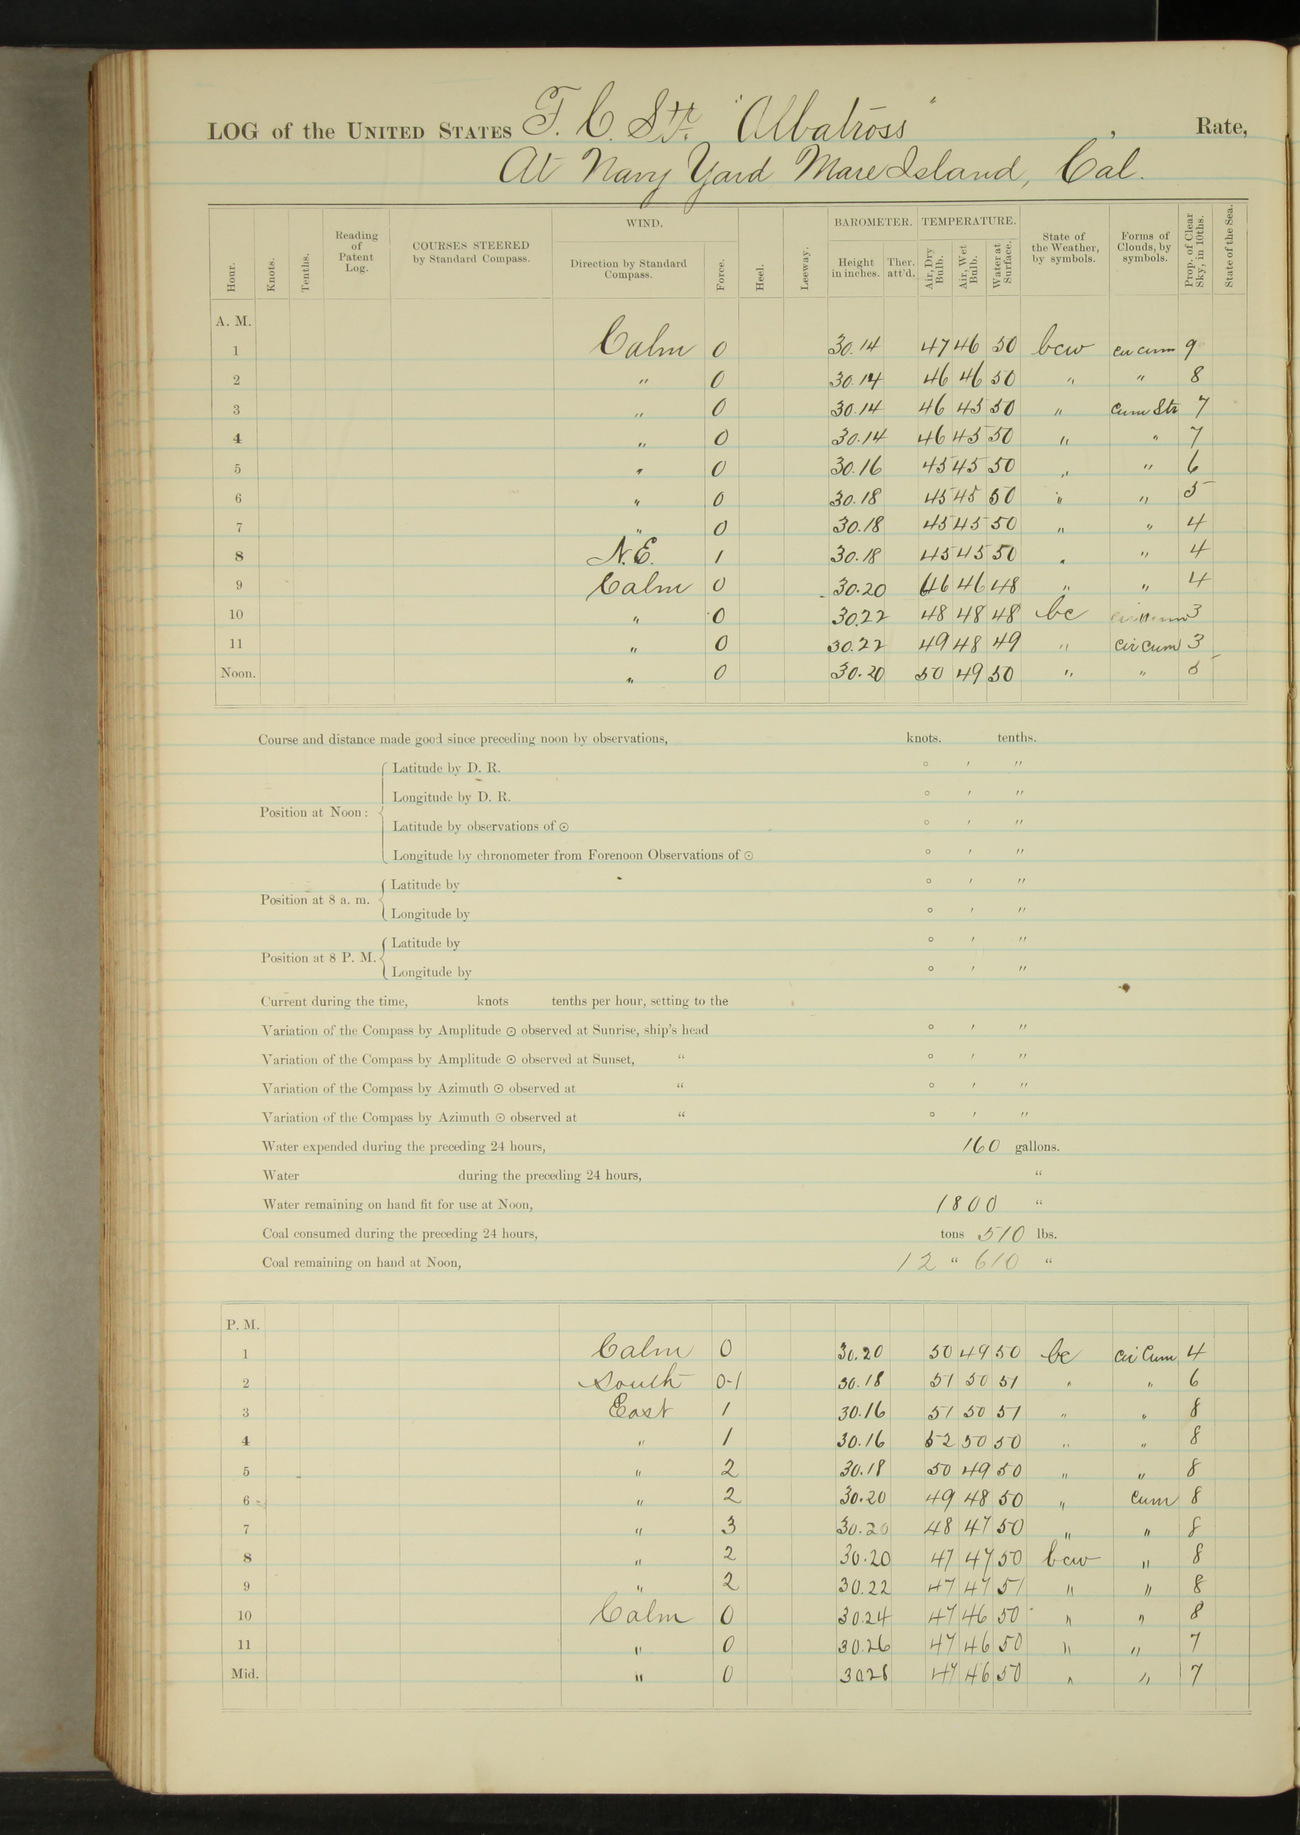 LOG of the UNITED STATES F. C. Str. "Albatross", Rate,
At Navy Yard Mare Island, Cal.
WIND. BAROMETER. TEMPERATURE.
Hour. Knots. Tenths. Reading of Patent Log. COURSES STEERED by Standard Compass. Direction by Standard Compass. Force. Heel. Leeway. Height in inches. Ther. att'd. Air, Dry Bulb. Air, Wet Bulb. Water at Surface. State of the Weather, by symbols. Forms of Clouds, by symbols. Prop. of Clear Sky, in 10ths. State of the Sea.
A. M.
1 Calm 0 30.14 47 46 50 bcw cir cum 9
2 " 0 30.14 46 46 50 " " 8
3 " 0 30.14 46 45 50 " Cum Str 7
4 " 0 30.14 46 45 50 " " 7
5 " 0 30.16 45 45 50 " " 6
6 " 0 30.18 45 45 50 " " 5
7 " 0 30.18 45 45 50 " " 4
8 N.E. 1 30.18 45 45 50 " " 4
9 Calm 0 30.20 46 46 48 " " 4
10 " 0 30.22 48 48 48 bc 3
11 " 0 30.22 49 48 49 " Cir Cum 3
Noon. " 0 30.20 50 49 50 " " 5
Course and distance made good since preceding noon by observations, knots. tenths.
Latitude by D. R. ° ′ ″
Longitude by D. R. ° ′ ″
Position at Noon:
Latitude by observations of ☉ ° ′ ″
Longitude by chronometer from Forenoon Observations of ☉ ° ′ ″
Latitude by ° ′ ″
Position at 8 a. m.
Longitude by ° ′ ″
Latitude by ° ′ ″
Position at 8 P. M.
Longitude by ° ′ ″
Current during the time, knots tenths per hour, setting to the
Variation of the Compass by Amplitude ☉ observed at Sunrise, ship's head ° ′ ″
Variation of the Compass by Amplitude ☉ observed at Sunset, " ° ′ ″
Variation of the Compass by Azimuth ☉ observed at " ° ′ ″
Variation of the Compass by Azimuth ☉ observed at " ° ′ ″
Water expended during the preceding 24 hours, 160 gallons.
Water during the preceding 24 hours, "
Water remaining on hand fit for use at Noon, 1800 "
Coal consumed during the preceding 24 hours, tons 510 lbs.
Coal remaining on hand at Noon, 12 " 610 "
P. M.
1 Calm 0 30.20 50 49 50 bc Cir Cum 4
2 South 0-1 30.18 51 50 51 " " 6
3 East 1 30.16 51 50 51 " " 8
4 " 1 30.16 52 50 50 " " 8
5 " 2 30.18 50 49 50 " " 8
6 " 2 30.20 49 48 50 " Cum 8
7 " 3 30.20 48 47 50 " " 8
8 " 2 30.20 47 47 50 bcw " 8
9 " 2 30.22 47 47 51 " " 8
10 Calm 0 30.24 47 46 50 " " 8
11 " 0 30.26 47 46 50 " " 7
Mid. " 0 30.28 47 46 50 " " 7